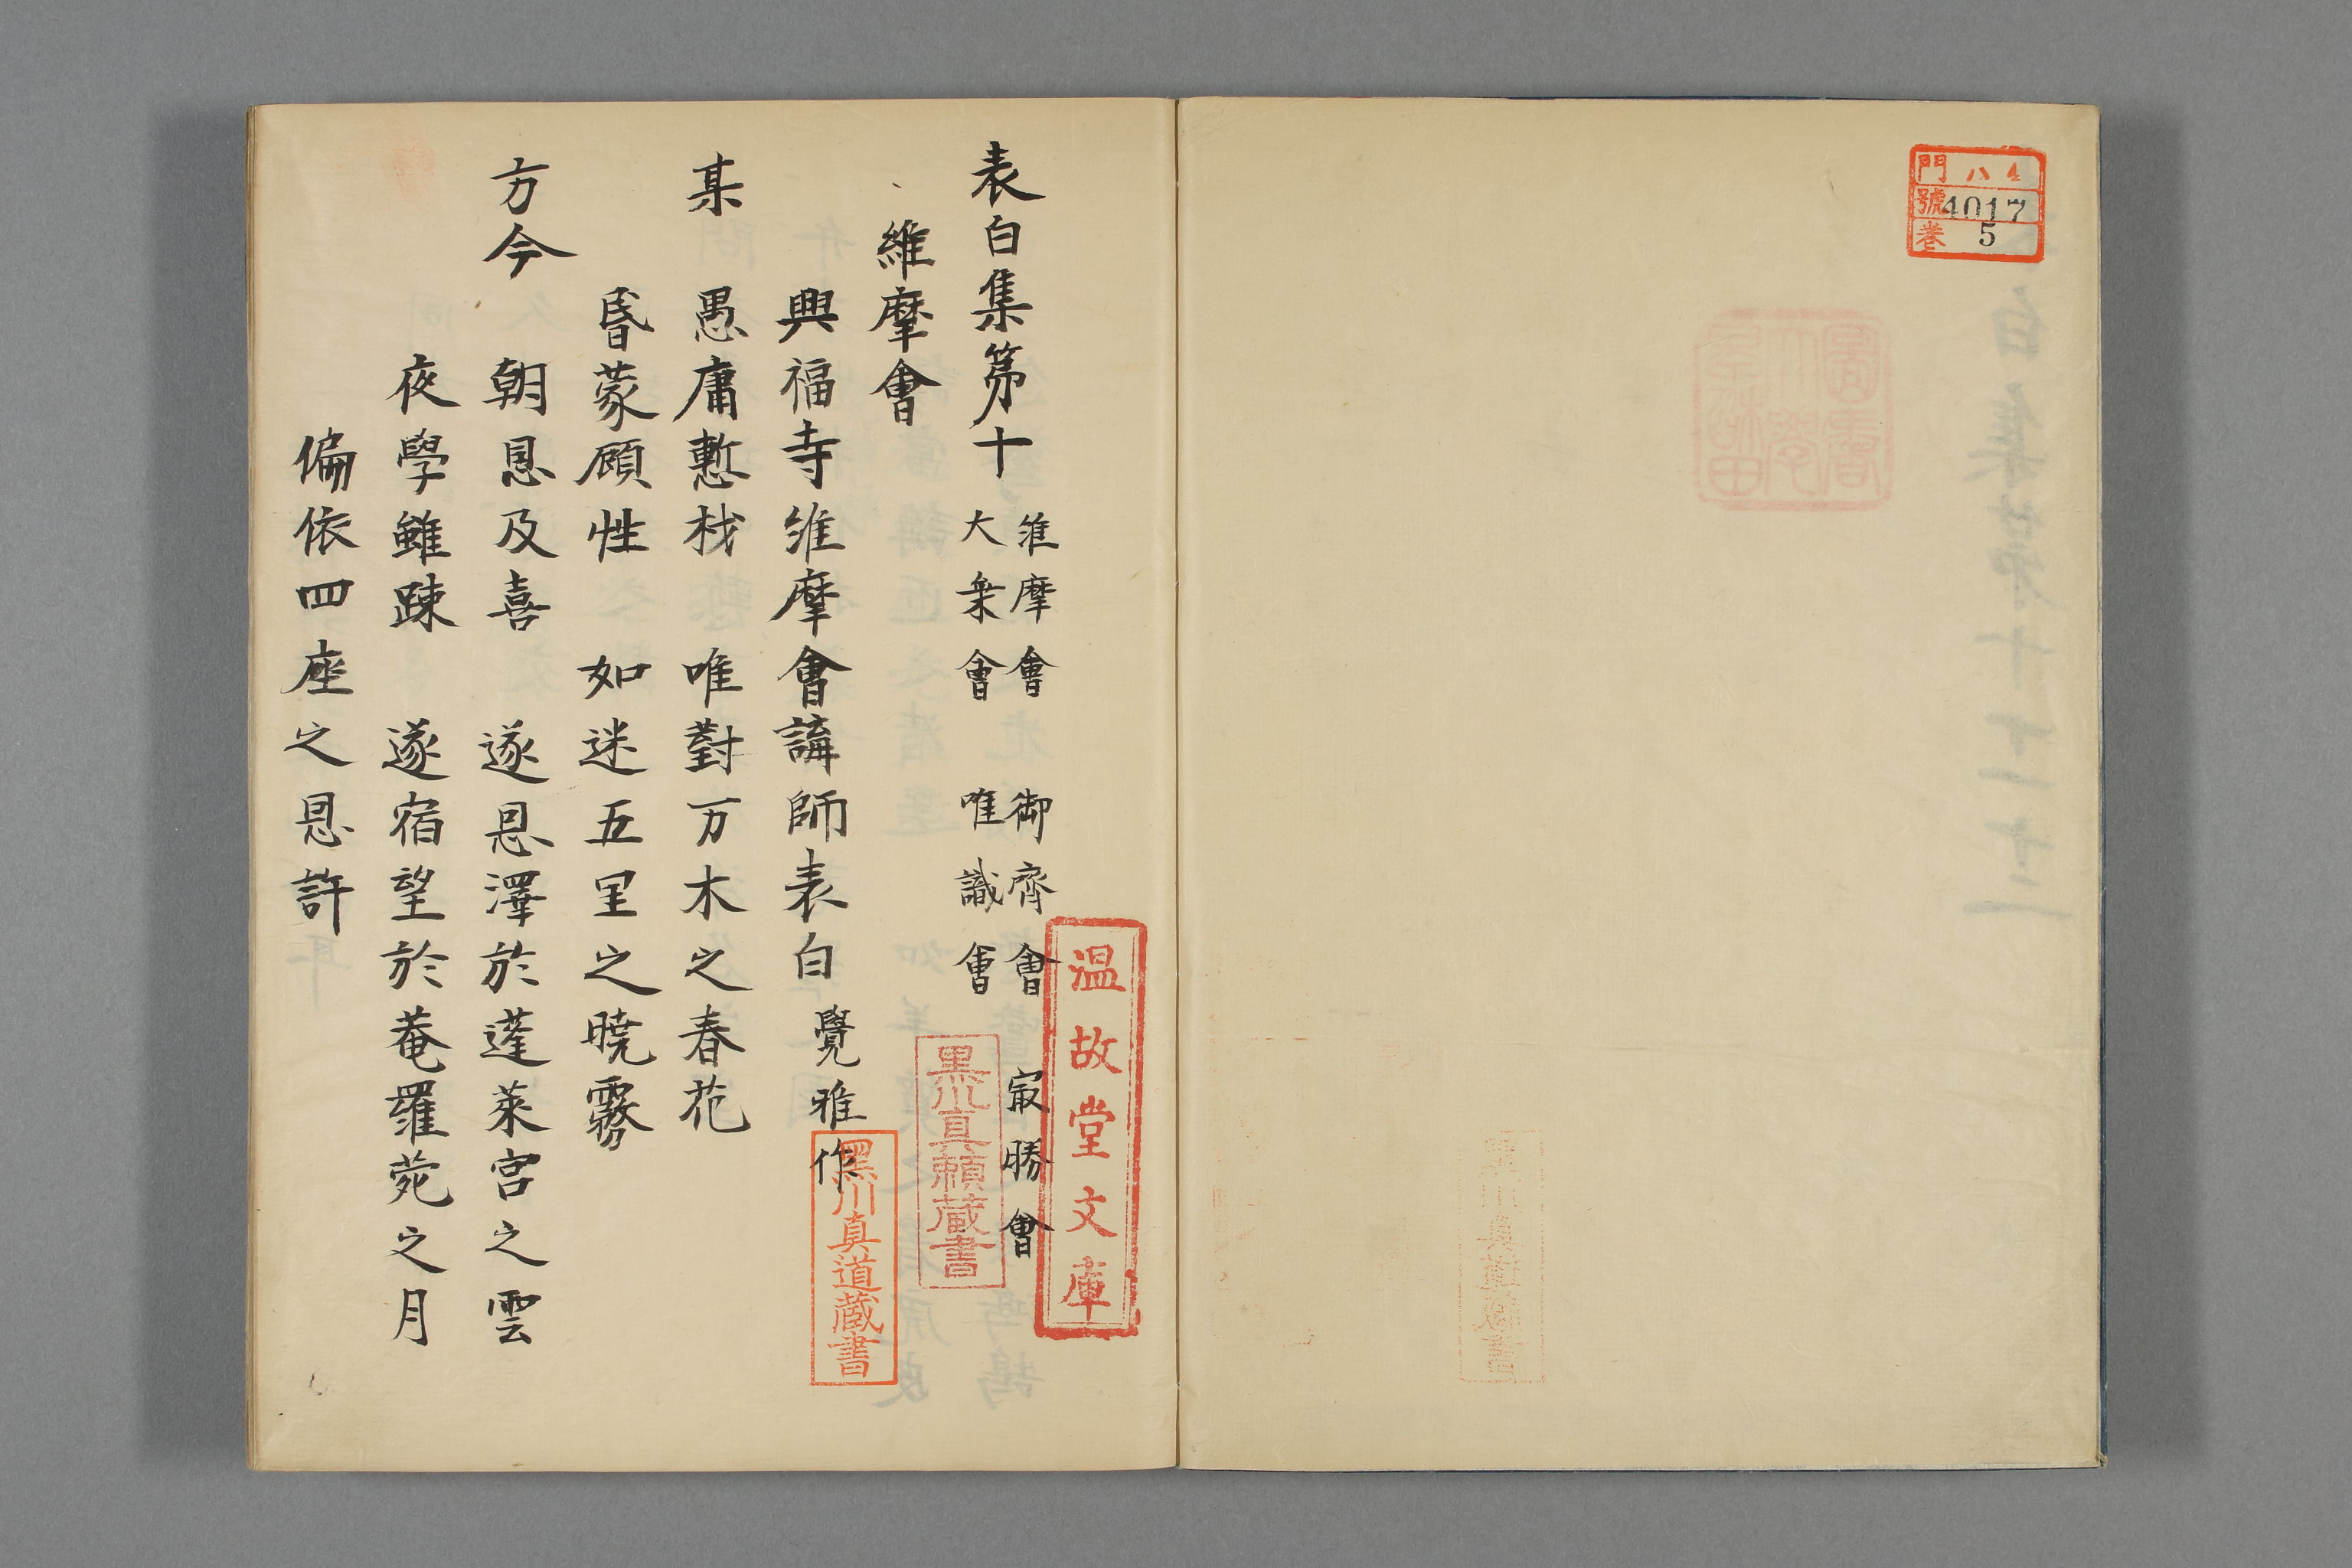 門 八 4
號 4017
巻 5
表白集第十
維摩會 御齊會 冣勝會
大衆會 唯識會
維摩會
興福寺維摩會講師表白 覺雅作
某 愚庸慙材 唯對万木之春花
昏蒙顧性 如迷五里之曉霧
方今 朝恩及喜 遂恩澤於蓬萊宮之雲
夜學雖踈 遂宿望於菴羅菀之月
偏依四座之恩許
温故堂文庫
黒川真頼蔵書
黒川真道蔵書